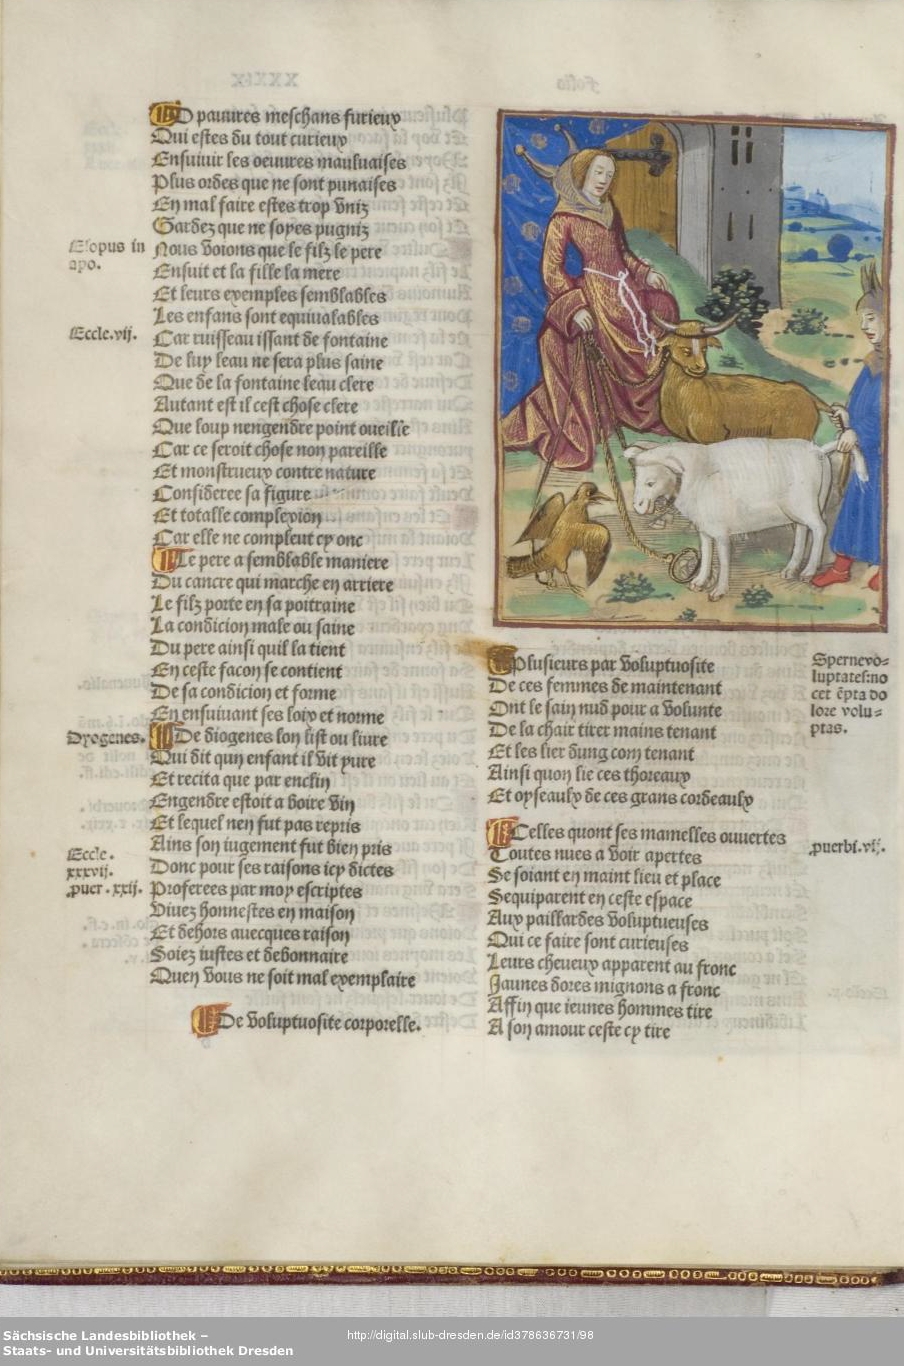 O pauures meschans furieux
Qui estes du tout curieux
Ensuiuir les oeuures mauluaises
Plus ordes que ne sont punaises
En mal faire estes trop vniz
Gardez que ne soyes pugniz
Esopus in apo.
Nous voions que le filz le pere
Ensuit et la fille la mere
Et leurs exemples semblables
Les enfans sont equiualables
Eccle.vij.
Car ruisseau issant de fontaine
De luy leau ne sera plus saine
Que de la fontaine leau clere
Autant est il cest chose clere
Que loup nengendre point oueille
Car ce seroit chose non pareille
Et monstrueux contre nature
Consideree sa figure
Et totalle complexion
Car elle ne compleut cy onc
Le pere a semblable maniere
Du cancre qui marche en arriere
Le filz porte en sa poitraine
La condicion male ou saine
Du pere ainsi quil la tient
En ceste facon se contient
De sa condicion et forme
En ensuiuant ses loix et norme
Dyogenes.
De diogenes lon list ou liure
Qui dit qun enfant il vit yure
Et recita que par enclin
Engendre estoit a boire vin
Et lequel nen fut pas repris
Ains son iugement fut bien pris
Eccle.
xxxvij.
Donc pour ses raisons icy dictes
ꝓuer.xxij.
Proferees par moy escriptes
Viuez honnestes en maison
Et dehors auecques raison
Soiez iustes et debonnaire
Quen vous ne soit mal exemplaire
De voluptuosite corporelle.
Plusieurs par voluptuosite
De ces femmes de maintenant
Ont le sain nud pour a volunte
De la chair tirer mains tenant
Et les lier dung com tenant
Ainsi quon lie ces thoreaux
Et oyseaulx de ces grans cordeaulx
Spernevo=
luptates:no
cet ẽpta do
lore volu=
ptas.
Celles quont ses mamelles ouuertes
Toutes nues a voir apertes
ꝓuerbi.vij.
Se soiant en maint lieu et place
Sequiparent en ceste espace
Aux paillardes voluptueuses
Qui ce faire sont curieuses
Leurs cheueux apparent au fronc
Jaunes dores mignons a fronc
Affin que ieunes hommes tire
A son amour ceste cy tire
Sächsische Landesbibliothek –
Staats- und Universitätsbibliothek Dresden
http://digital.slub-dresden.de/id378636731/98